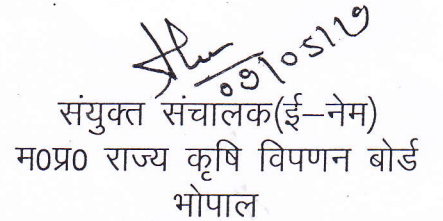 09/05/19
संयुक्त संचालक(ई–नेम)
म0प्र0 राज्य कृषि विपणन बोर्ड
भोपाल